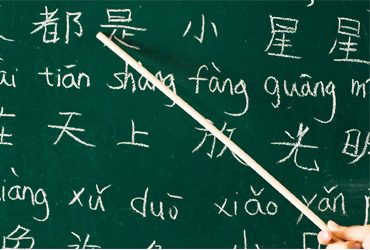 都是小星星
tiān shàng fàng guāng
在天上放光明
xǔ duō xiǎo yǎn